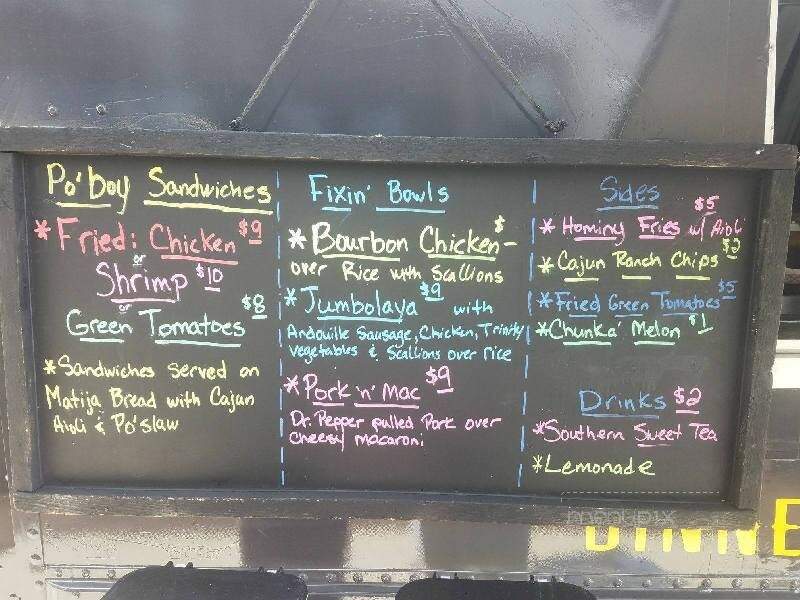 Po'boy Sandwiches
* Fried: Chicken $9
or
Shrimp $10
or
Green Tomatoes $8
* Sandwiches served on
Matija Bread with Cajun
Aioli & Po'slaw
Fixin' Bowls
* Bourbon Chicken - $
over Rice with Scallions
* Jumbolaya $9 with
Andouille Sausage, Chicken, Trinity
vegetables & Scallions over rice
* Pork 'n' Mac $9
Dr. Pepper pulled Pork over
cheesy macaroni
Sides
* Hominy Fries w/ Aioli $5
* Cajun Ranch Chips $2
* Fried Green Tomatoes $5
* Chunka' Melon $1
Drinks $2
* Southern Sweet Tea
* Lemonade